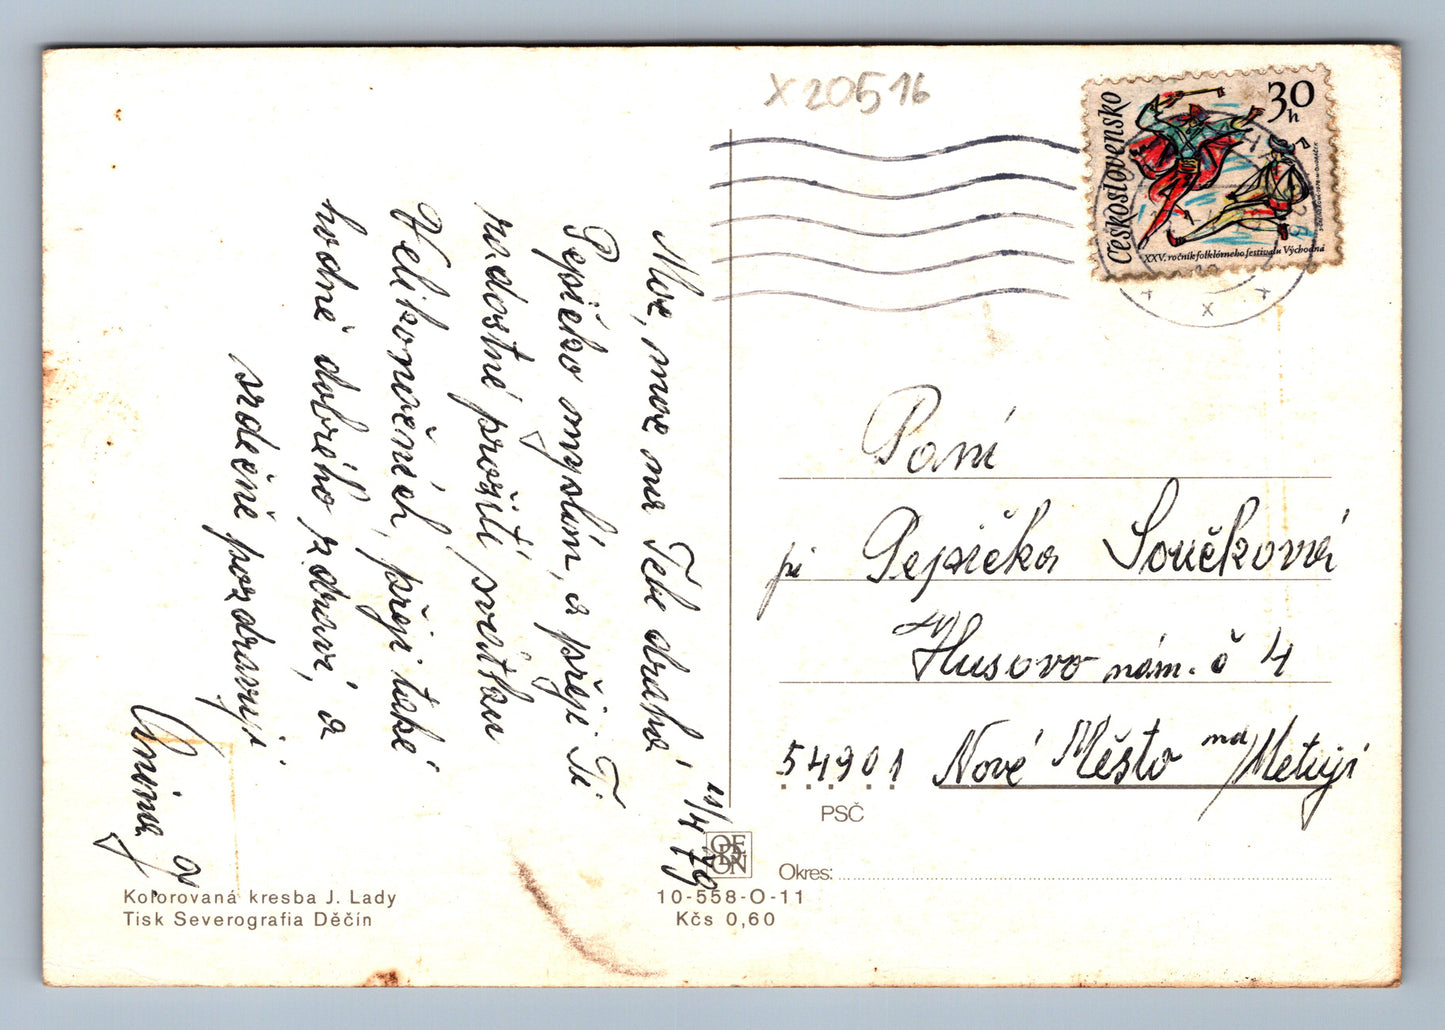 X 20516
Československo
30
h
XXV. ročník folklórneho festivalu Východná
Moc, moc na Tebe drahá
Pepičko myslím, a přeji Ti
radostné prožití svátku
Velikonočních, přeji také
hodně dobrého zdraví, a
srdečně pozdravuji
a
4/79
Paní
pí Pepička Součková
Husovo nám. č 4
54901 Nové Město nad/Metují
PSČ
Okres:
ODEON
Kolorovaná kresba J. Lady
Tisk Severografia Děčín
10-558-O-11
Kčs 0,60